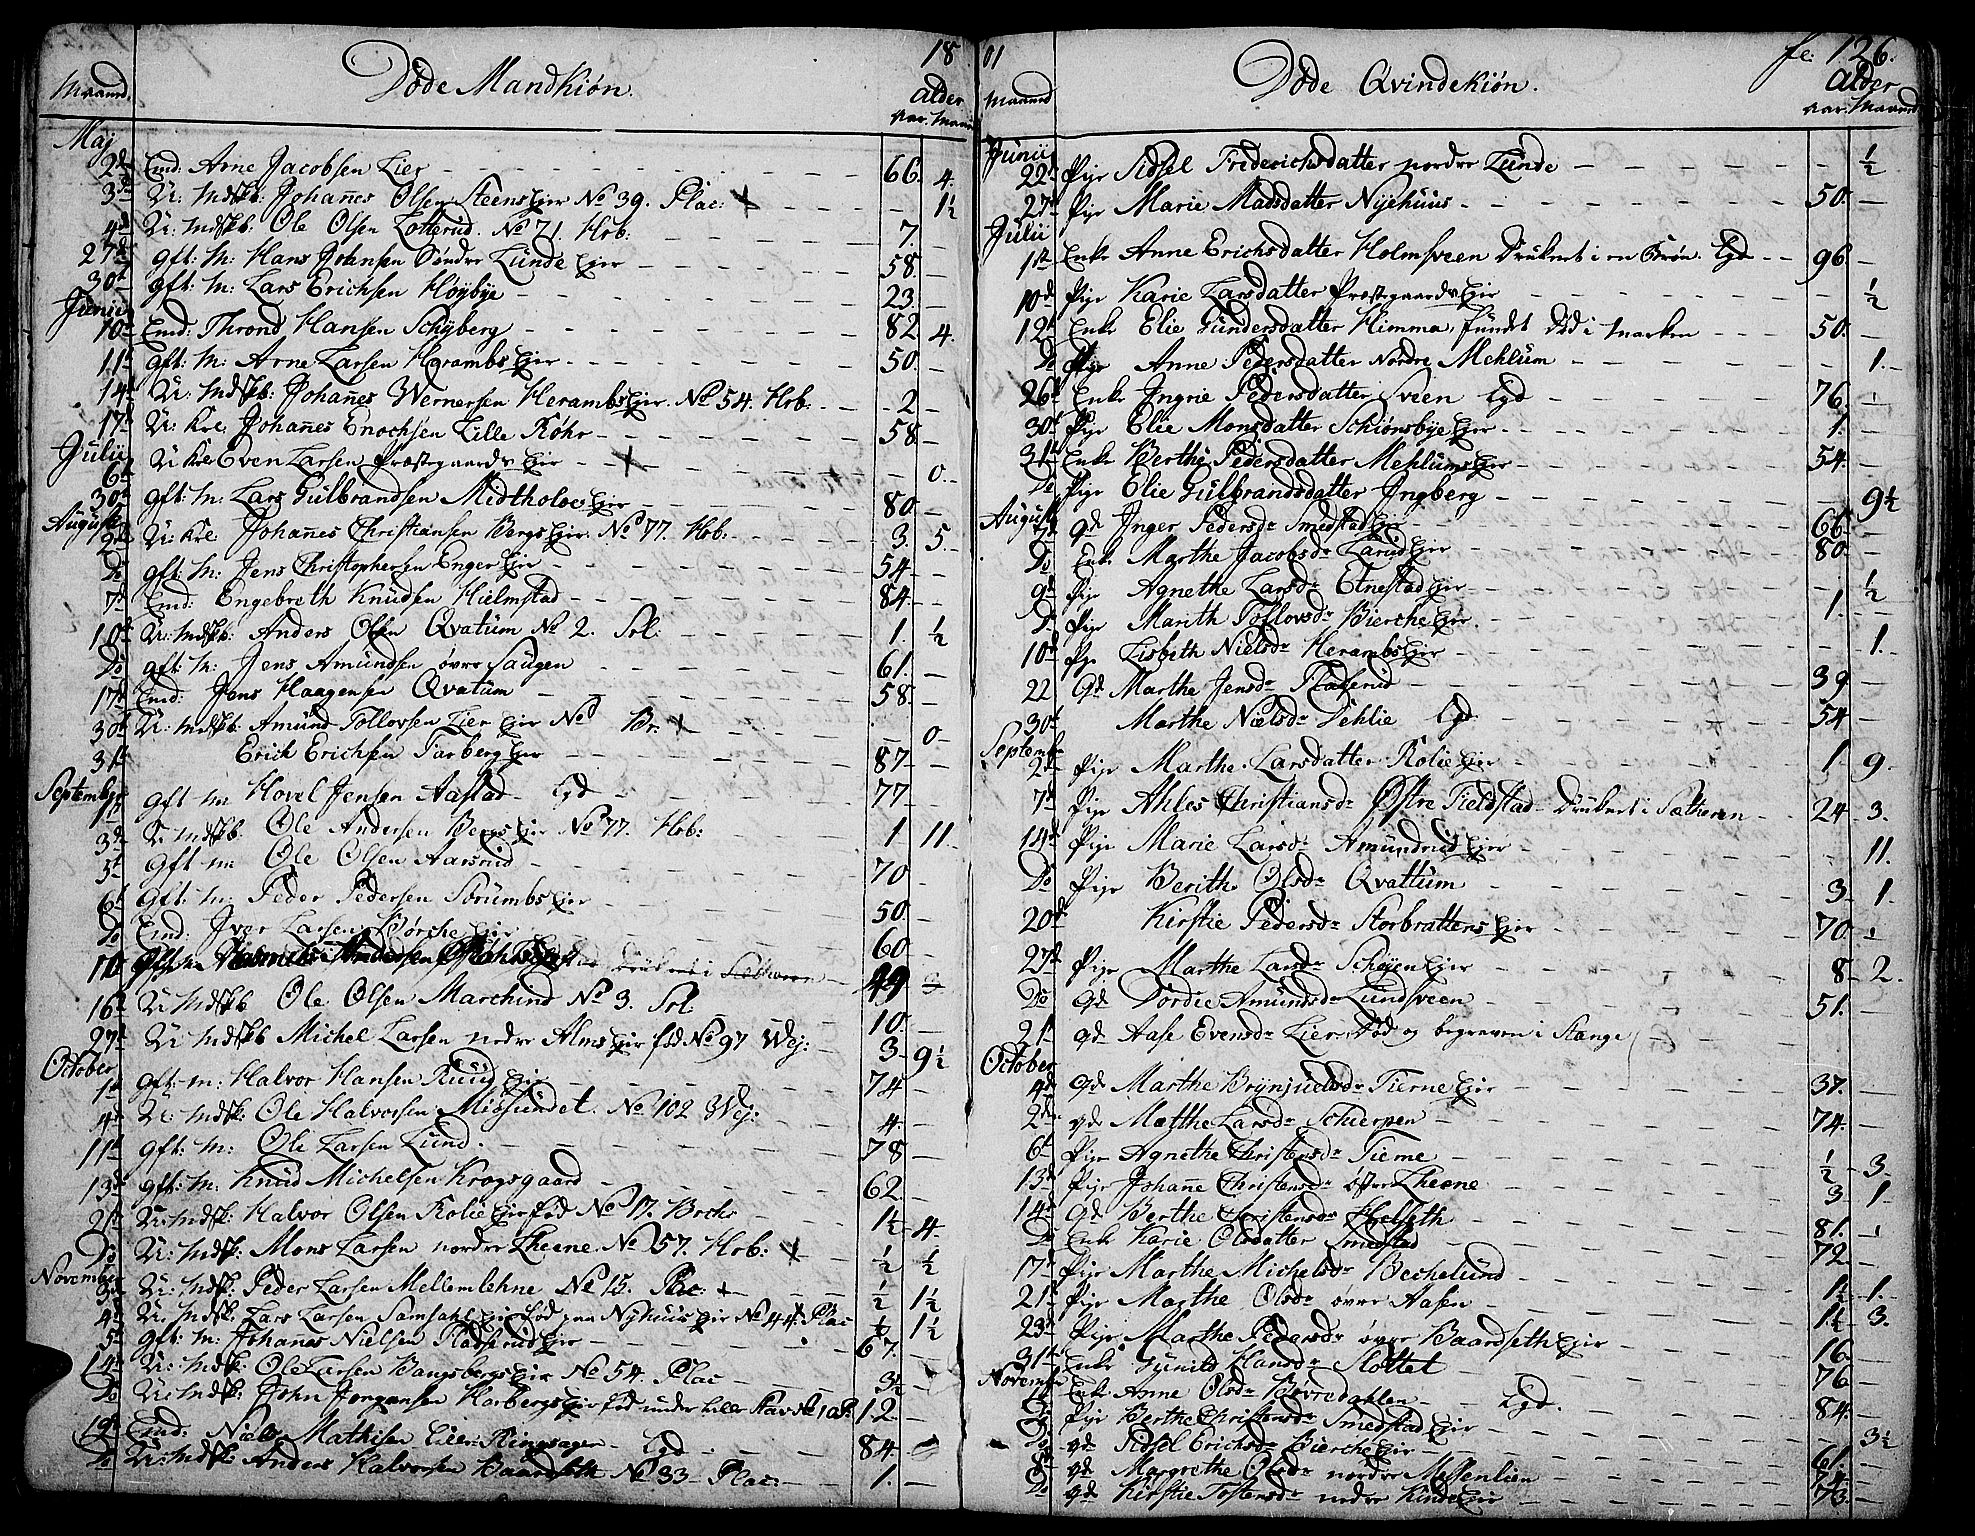 18
Døde Mandkiøn.
Maaned
Alder
Aar. Maan
Maj
2d Emd: Arne Jacobsen Lier 66. 4.
3d U: Mdskb: Johañes Olsen Steens Ejer No 39. Plac: – 1½
4d U: Mdskb: Ole Olsen Lotterud. No 71. Hrb: 7. –
27d gft: M: Hans Johnsen Søndre Lunde Ejer 58. –
30t gft: M: Lars Erichsen Høybye 23. –
Junii
10d Emd: Thrond Hansen Schyberg 82 4.
11t gft: M: Arne Larsen Herambs Ejer 50. –
14d U: Mdskb: Johañes Wernersen Herambs Ejer. No 54. Hrb: 2 –
17d U: Kre Johañes Enochsen Lille Køhr 58 –
Julii
6t U: Kre Even Larsen Præstegaards Ejer 0.
30t gft: M: Lars Gulbrandsen Midtholoe Ejer 80. –
August
2d U: Kre Johañes Christiansen Bergs Ejer No 77. Hrb: 3. 5.
Do gft: M: Jens Christophersen Enger Ejer 54 –
7d Emd: Engebreth Knudsen Hielmstad 84. –
10d U: Mdskb: Anders Olsen Qvatum No 2. Srl: 1. ½
Do gft: M: Jens Amundsen øvre Saugen 61. –
17d Emd: Jens Haagensen Qvatum 58. –
30t U: Mdskb: Amund Tollovsen Lier Ejer No Br: 0
31t Erich Erichsen Farberg Ejer 87 –
September
1t gft M Hovel Jensen Aastad Lgd 77 –
3d U: Mdskb. Ole Andersen Bergs Ejer No 77. Hrb: 1 11.
5t gft M: Ole Olsen Aasrud 70 –
6t gft: M: Peder Pedersen Sørumbs Ejer 50. –
Do Emd: Iver Larsen Børche Ejer 60. –
10 gft: M: Andersen 49 3
16d U: Mdskb: Ole Olsen Marchind No 3. Srl 10. –
27d U: Mdskb Michel Larsen nedre Alms Ejer fød No 97 Wej: 3 9½
October
1t gft: M: Halvor Hansen Ruud Ejer 74 –
4d U: Mdsk: Ole Halvorsen Missundet. No 102 Wej: 4. –
11t gft: M: Ole Larsen Lund. 78 –
13d gft: M: Knud Michelsen Krogsgaard 62. –
21t U: Mdsk: Halvor Olsen Rolie Ejer fød No 17. Brchr 1½ 4.
Do U: Mdsk: Mons Larsen nordre Theene No 57. Hrb: ½ ½
November
3d U: Mdsk: Peder Larsen Mellemlehne No 15. Plac: ½ 1½
4d U: Mdsk: Lars Larsen Samsahl Ejer fød paa Nyhuus Ejer No 44 Plac ½ 1½
5t gft: M: Johañes Nielsen Flaaserud Ejer 67. –
14d U: Mdsk: Ole Larsen Bangsbergs Ejer No 54. Plac 3½ –
Do U: Mdsk: John Jørgensen Harbergs Ejer fød under Lille Stav No 10 Pl: 12 –
19d Emd: Niels Mathisen Eier Ringsager Lgd 84. –
Do U: Mdsk: Anders Halvorsen Baardseth No 33 Plac: 1. –
01
fo: 126.
Døde Qvindekiøn.
Maaned
Alder
Aar. Maaned
Junii
22d Pige Sidsel Frederichsdatter nordre Lunde – ½
27d Pige Marie Madsdatter Nyehuus 50. –
Julii
1te Enke Anne Erichsdatter Holmsveen Druknet i en Brøn. Lgd 96 –
10d Pige Karie Larsdatter Præstegaards Ejer ½
12d Enke Elie Gundersdatter Himma, fundet død i Marken 50. –
Do Pige Anne Pedersdatter Nordre Mehlum 1.
26d Enke Ingrie Pedersdatter Sveen Lgd 76. –
30t Pige Elie Monsdatter Schiønsbye Ejer 1. –
31t Enke Berthe Pedersdatter Mehlums Ejer 54. –
Do Pige Elie Gulbrandsdatter Ingberg – 9½
August
7d gd Inger Pedersdr Smedstad Ejer 66. –
Do Enke Marthe Jacobsdr Larud Ejer 80. –
9d Pige Agnethe Larsdr Etnestad Ejer ½
Do Pige Marith Tollovsdr Bierche Ejer. 1. –
10d Pige Lisbeth Nielsdr Herambs Ejer – 1.
22 Gd Marthe Jensdr Flaserud 39 –
30t Marthe Nielsdr Dehlie Lgd 54 –
Septembr
2d Pige Marthe Larsdatter Rolie Ejer 1. 9.
7d Pige Ahles Christiansdr Østre Fieldstad Druknet i Sætheren 24 3.
14d Pige Marie Larsdr Amundrud Ejer 11.
Do Pige Berithe Olsdr Qvattum 3 1.
20d Kirstie Pedersdr Storbrattens Ejer 70. –
27d Pige Marthe Larsdr Schøyen Ejer 8 2.
Do gd Dordie Amundsdr Lundsveen 51. –
21t gd Aase Evensdr Lier Død og begraven i Stange
October
4d Gd Marthe Brynjuelsdr Tierne Ejer 37. –
2d gd Mathe Larsdr Schierpen 74. –
6t Pige Agnethe Christensdr Tierne ½ 3.
13d Pige Johañe Christensdr østre Theene 3 1.
14d Gd Berthe Christensdr Helseth 81. –
Do Enke Karie Olsdatter Smedstad 72 –
17d Pige Marthe Michelsdr Bechelund –
21t Pige Marthe Olsdr øvre Aasen 1½ 1.
23d Pige Marthe Pedersdr øvre Baardseth Ejer 1½ 3.
31t Enke Gunild Hansdr Slottet 16 –
November
Enke Anne Olsdr Bøvredahlen Lgd. 76 –
Do Pige Berthe Christensdr Smedstad Ejer 84. –
Do gd Sidsel Erichsdr Bierche Ejer 3½
gd Margrethe Olsdr nordre Mellenlien 61. –
Do gd Kirstie Tostensdr nedre Kinde Ejer 73. –